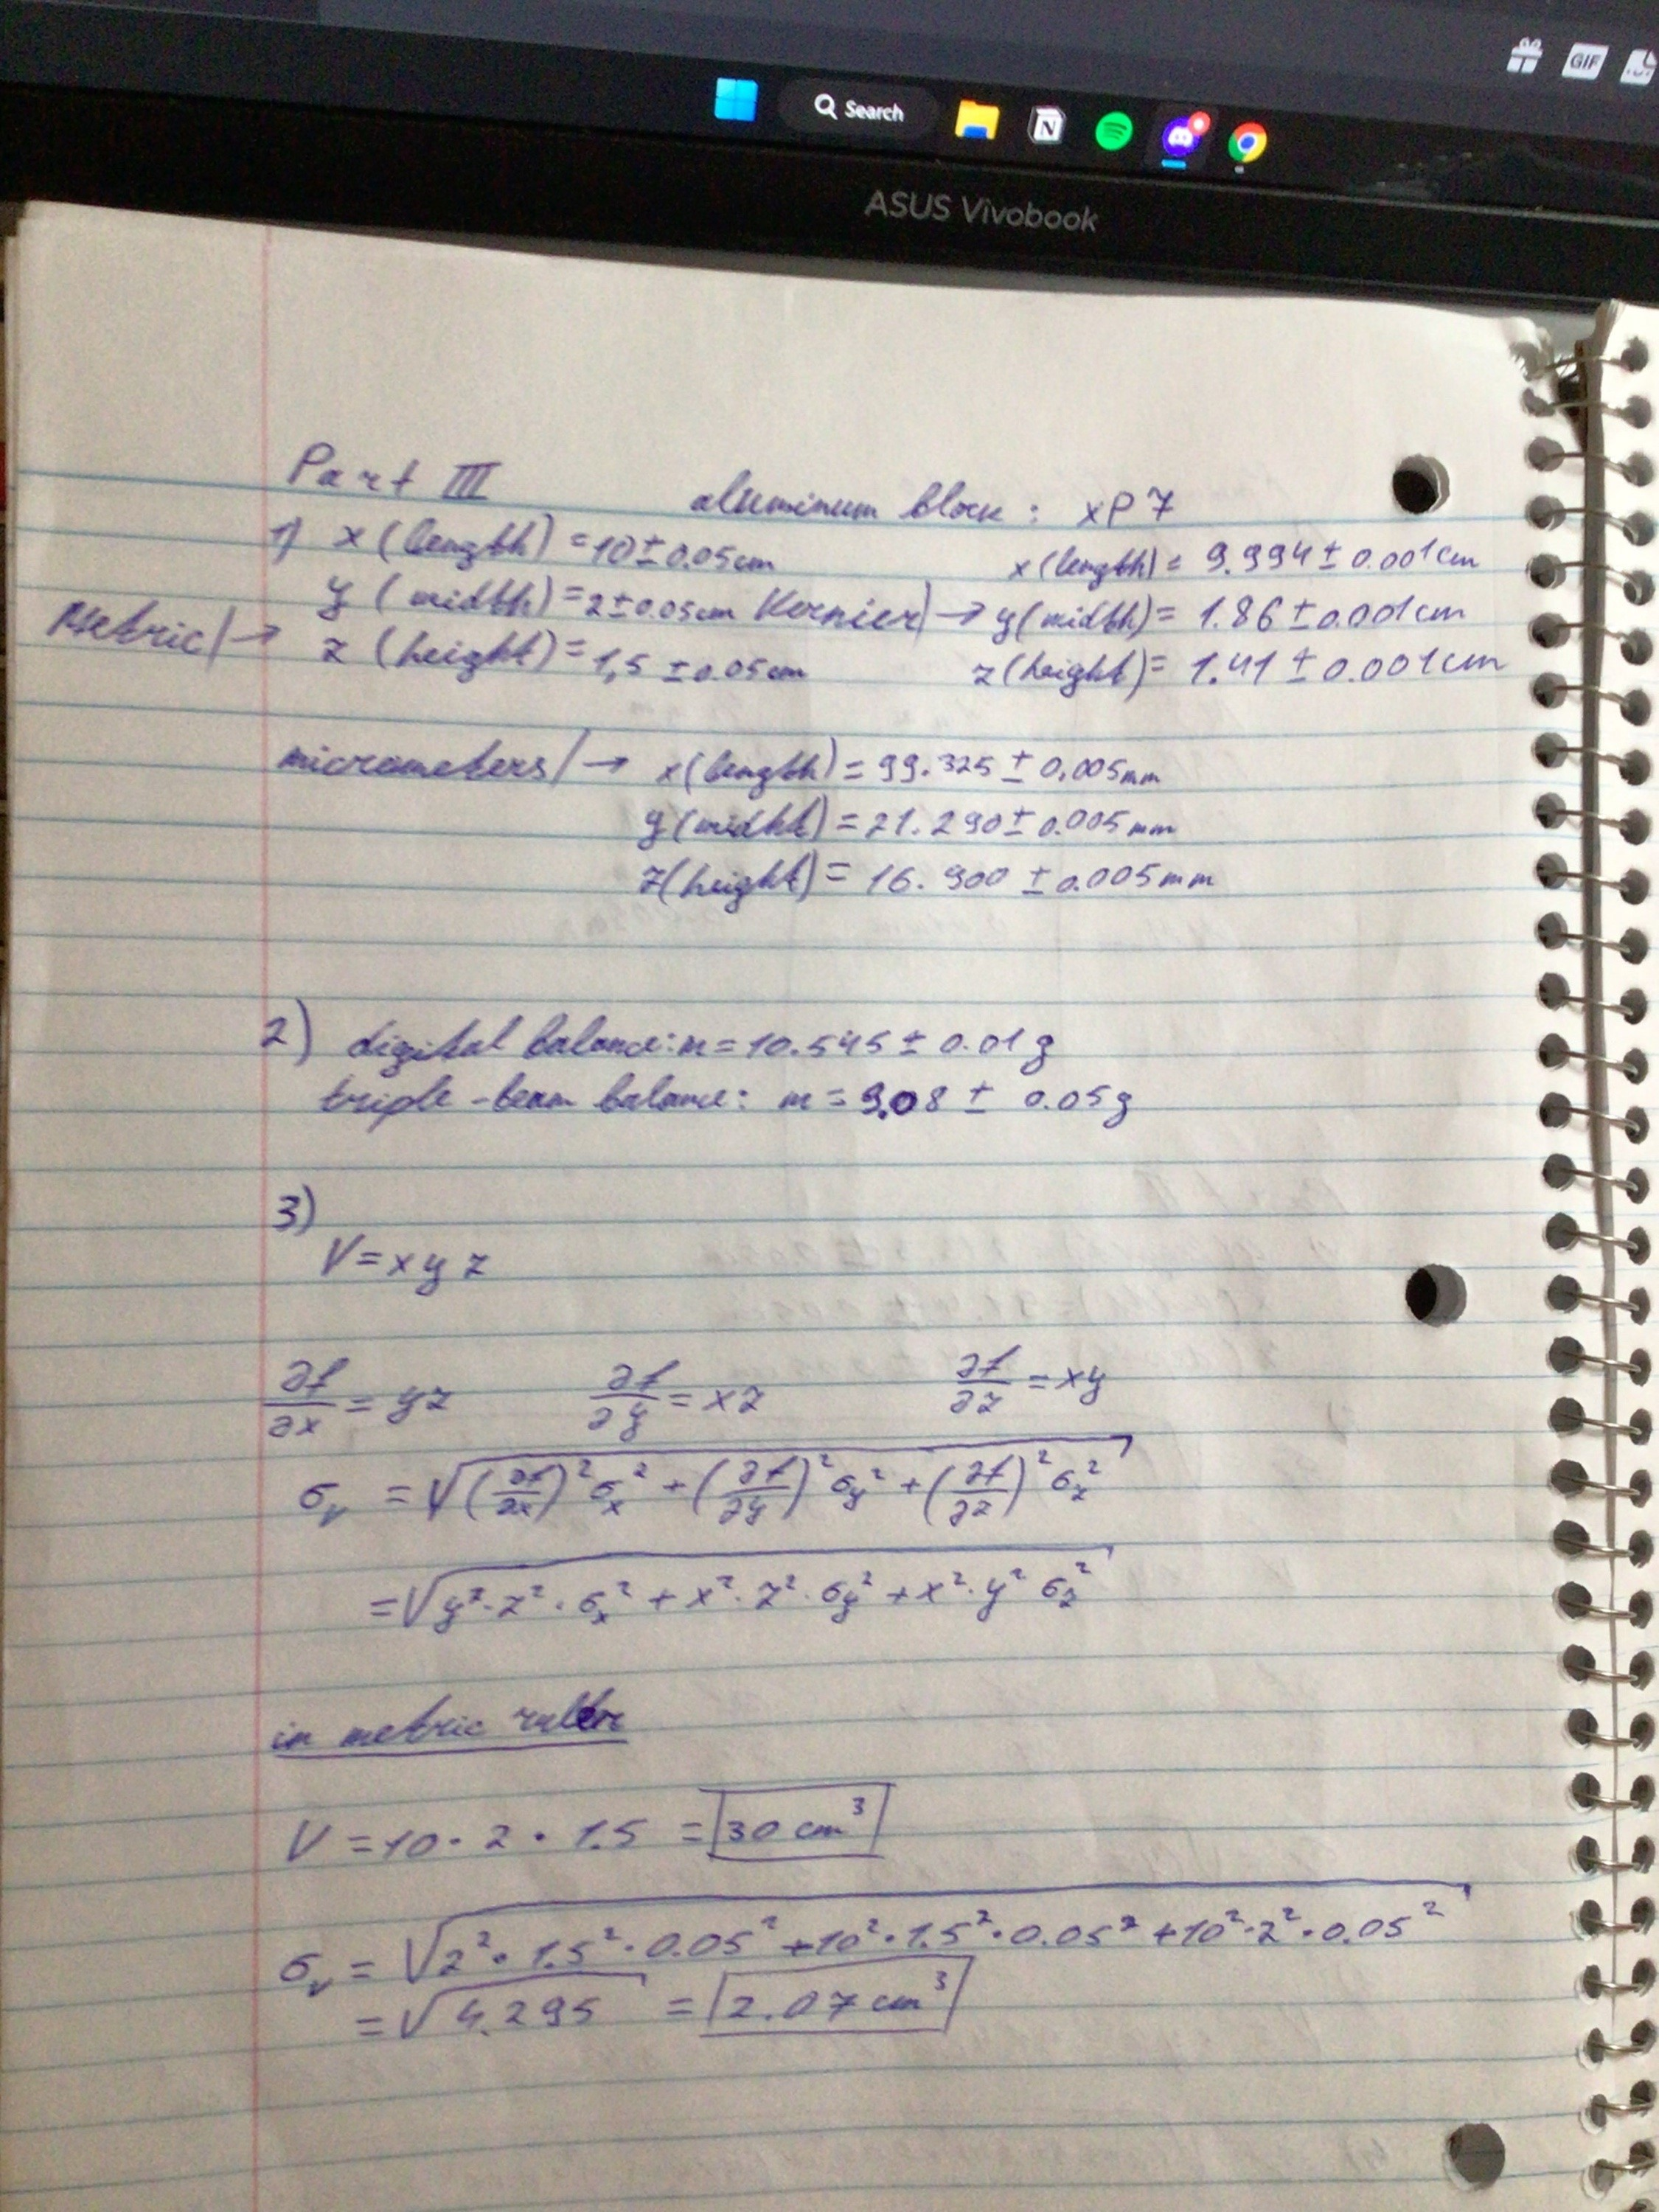 GIF
Search
ASUS Vivobook
Part III
aluminum block: xP7
1) x (length) = 10 ± 0.05 cm
x (length) = 9.994 ± 0.001 cm
y (width) = 2 ± 0.05 cm
Vernier → y (width) = 1.86 ± 0.001 cm
Metric → z (height) = 1,5 ± 0.05 cm
z (height) = 1.41 ± 0.001 cm
micrometers → x (length) = 99.325 ± 0.005 mm
y (width) = 21.290 ± 0.005 mm
z (height) = 16.900 ± 0.005 mm
2) digital balance: m = 10.545 ± 0.01 g
triple-beam balance: m = 9.08 ± 0.05 g
3)
V = x y z
∂f/∂x = yz ∂f/∂y = xz ∂f/∂z = xy
σ_v = √((∂f/∂x)² σ_x² + (∂f/∂y)² σ_y² + (∂f/∂z)² σ_z²)
= √(y² · z² · σ_x² + x² · z² · σ_y² + x² · y² σ_z²)
in metric ruler
V = 10 · 2 · 1.5 = 30 cm³
σ_v = √(2² · 1.5² · 0.05² + 10² · 1.5² · 0.05² + 10² · 2² · 0.05²)
= √4.295 = 2.07 cm³